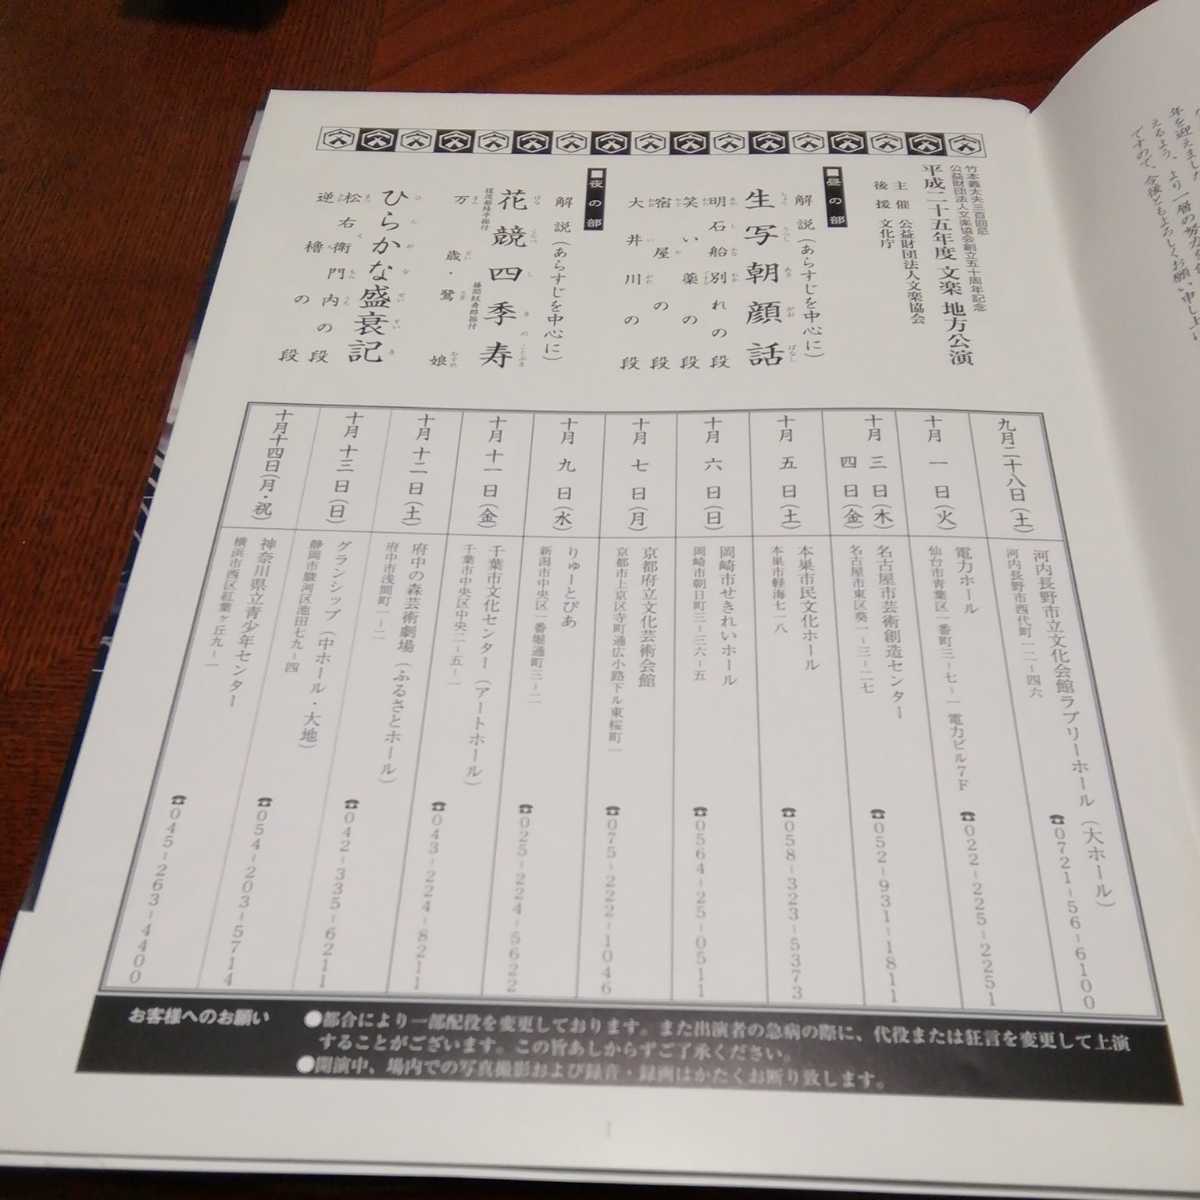 竹本義太夫三百回忌
公益財団法人文楽協会創立五十周年記念
平成二十五年度 文楽 地方公演
主催 公益財団法人文楽協会
後援 文化庁
■昼の部
解説(あらすじを中心に)
生写朝顔話
明石船別れの段
笑い薬の段
宿屋の段
大井川の段
■夜の部
解説(あらすじを中心に)
花競四季寿
万歳・鷺娘
ひらかな盛衰記
松右衛門内の段
逆櫓の段
九月二十八日(土)
河内長野市立文化会館ラブリーホール(大ホール)
河内長野市西代町一二−四六
☎0721-56-6100
十月一日(火)
電力ホール
仙台市青葉区一番町三−七−一 電力ビル7F
☎022-225-2251
十月三日(木)
四日(金)
名古屋市芸術創造センター
名古屋市東区葵一−三−二七
☎052-931-1811
十月五日(土)
本巣市民文化ホール
本巣市軽海七一八
☎058-323-5373
十月六日(日)
岡崎市せきれいホール
岡崎市朝日町三−三六−五
☎0564-25-0511
十月七日(月)
京都府立文化芸術会館
京都市上京区寺町通広小路下ル東桜町一
☎075-222-1046
十月九日(水)
りゅーとぴあ
新潟市中央区一番堀通町三−二
☎025-224-5622
十月十一日(金)
千葉市文化センター(アートホール)
千葉市中央区中央二−五−一
☎043-224-8211
十月十二日(土)
府中の森芸術劇場(ふるさとホール)
府中市浅間町一−二
☎042-335-6211
十月十三日(日)
グランシップ(中ホール・大地)
静岡市駿河区池田七九−四
☎054-203-5714
十月十四日(月・祝)
神奈川県立青少年センター
横浜市西区紅葉ヶ丘九−一
☎045-263-4400
お客様へのお願い
●都合により一部配役を変更しております。また出演者の急病の際に、代役または狂言を変更して上演
することがございます。この旨あしからずご了承ください。
●開演中、場内での写真撮影および録音・録画はかたくお断り致します。
1
年を迎えました
えるよう、より一層の努力を
ですので、今後ともよろしくお願い申し上